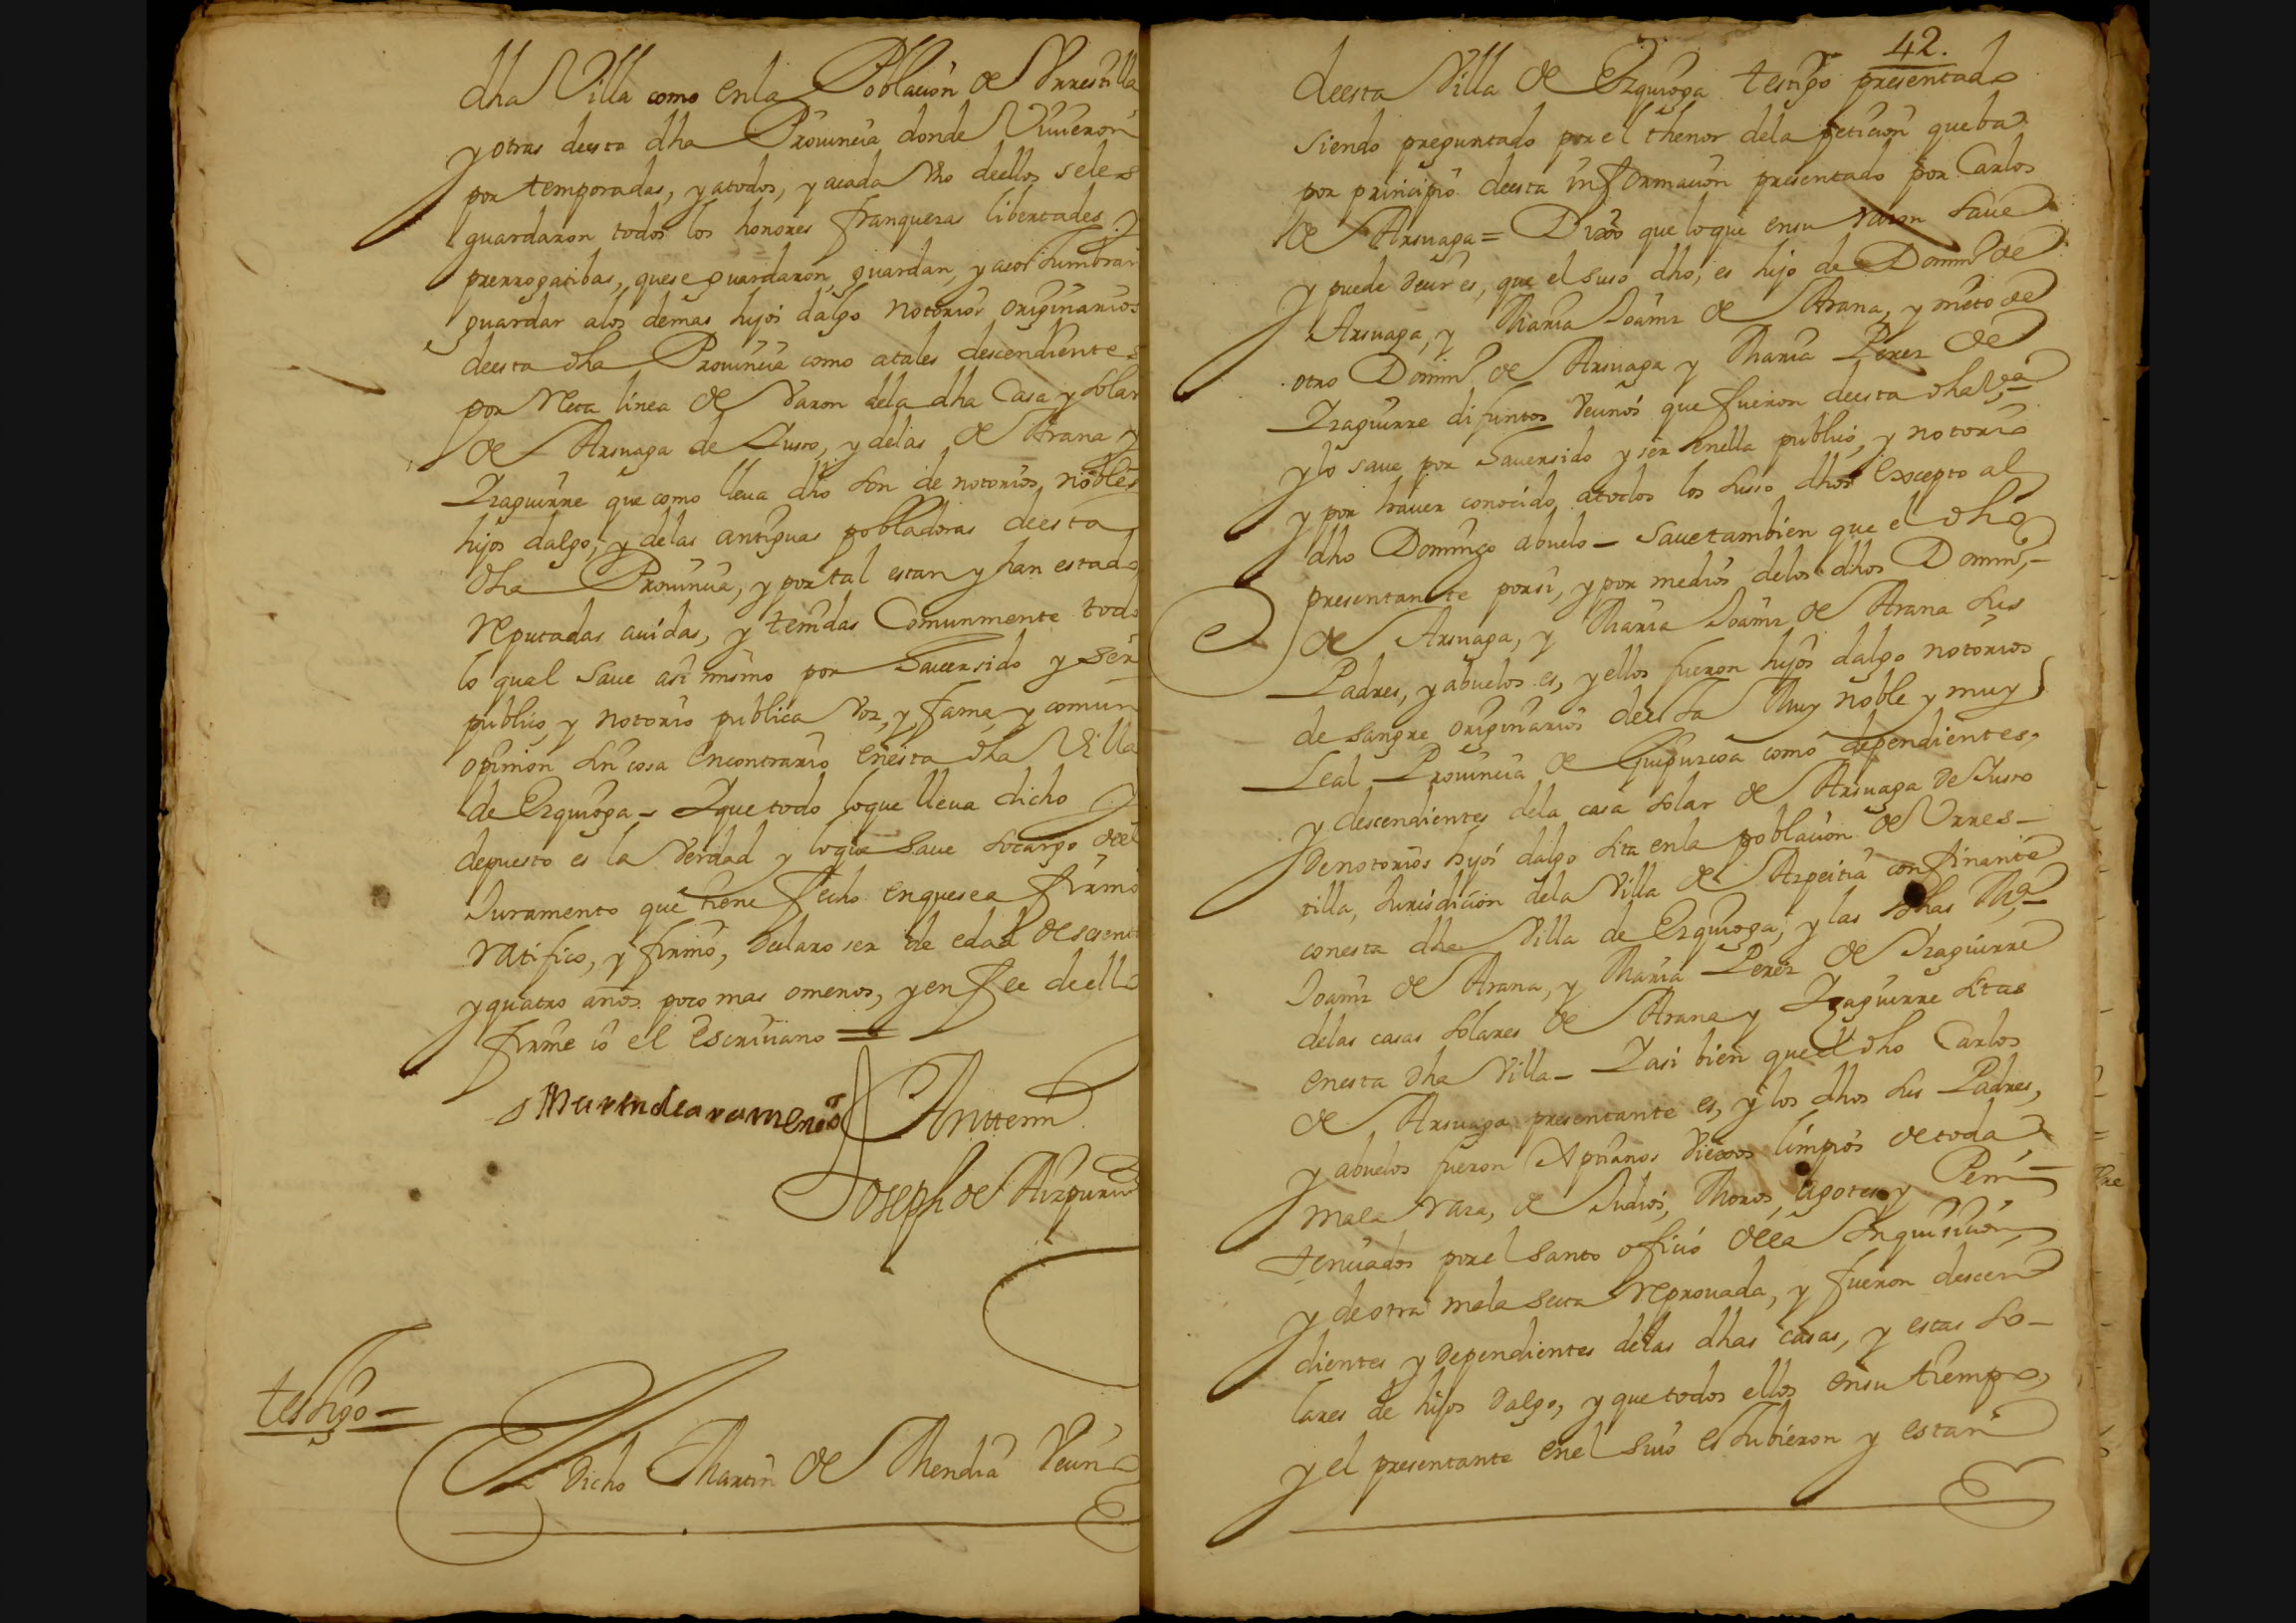 dha Villa como enla Poblacion de Vrrestilla
y otras deesta dha Prouincia donde Viuieron
por temporadas, y atodos, y acada Vno deellos seles
guardaron todos los honores franquezas libertades y
prerrogatibas, quese guardaron, guardan, y acostumbran
guardar alos demas hijos dalgo notorios originarios
deesta dha Prouincia como atales descendientes
por Recta linea de Varon dela dha Casa y solar
de Arsuaga de Suso, y delas de Arana y
Yzaguirre que como lleua dho son de notorios nobles
hijos dalgo, y delas antiguas pobladoras deesta
dha Prouincia, y por tal estan y han estado
Reputadas auidas, y tenidas Comunmente todo
lo qual saue asi mismo por hauersido y ser
publico y notorio publica Voz, y fama, y comun
opinion sin cosa encontrario enesta dha Villa
de Ezquioga - Yque todo loque lleua dicho y
depuesto es la Verdad y loque saue socargo del
Juramento que tiene fecho enquesea firmo
ratifico, y firmo, declaro ser de edad desesenta
y quatro años poco mas omenos, y en fee deello
firme io el escriuano =
Anttemi
Joseph de Aizpuru
testigo -
El dicho Martin de Mendia Vecino
42.
deesta Villa de Ezquioga testigo presentado
siendo preguntado por el thenor dela peticion queba
por principio deesta informacion presentado por Carlos
de Arsuaga = Dixo que loque ensu razon saue
y puede decir es, que el suso dho, es hijo de Domingo de
Arsuaga, y Maria Joaniz de Arana, y nieto de
otro Domingo de Arsuaga y Maria Perez de
Yzaguirre difuntos Vecinos que fueron deesta dha Va
y lo saue por hauersido y ser enella publico, y notorio
y por hauer conocido atodos los suso dhos excepto al
dho Domingo abuelo - Sauetambien que el dho
presentante porsi, y por medios delos dhos Domingo
de Arsuaga, y Maria Joaniz de Arana sus
Padres, y abuelos es, y ellos fueron hijos dalgo notorios
de sangre originarios deesta Muy noble y muy
Leal Prouincia de Guipuzcoa como dependientes,
y descendientes dela casa solar de Arsuaga de Suso
denotorios hijos dalgo sita enla poblacion de Vrres-
tilla, Jurisdicion dela Villa de Azpeitia confinante
conesta dha Villa de Ezquioga, y las dhas Ma
Joaniz de Arana, y Maria Perez de Yzaguirre
delas casas solares de Arana y Yzaguirre sitas
enesta dha Villa - Yasi bien que el dho Carlos
de Arsuaga presentante es, y los dhos sus Padres,
y abuelos fueron Xptianos Viexos limpios de toda
mala raza, de Judios, Moros, agotes, y Peni-
tenciados por el santo oficio dela Inquisicion,
y de otra mala secta Reprouada, y fueron descen-
dientes y dependientes delas dhas casas, y estas so-
lares de hijos dalgo, y que todos ellos ensu tiempo,
y el presentante enel suio estubieron y estan